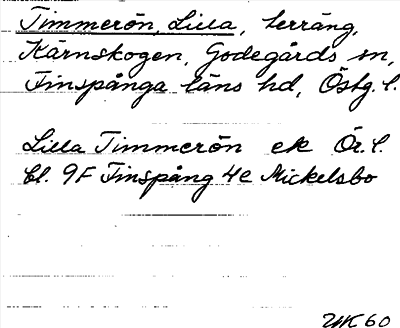 Timmerön, Lilla, terräng,
Kärnskogen, Godegårds sn,
Finspånga läns hd, Östg. l.
Lilla Timmerön ek Ör. l.
bl. 9F Finspång 4e Mickelsbo
UK 60